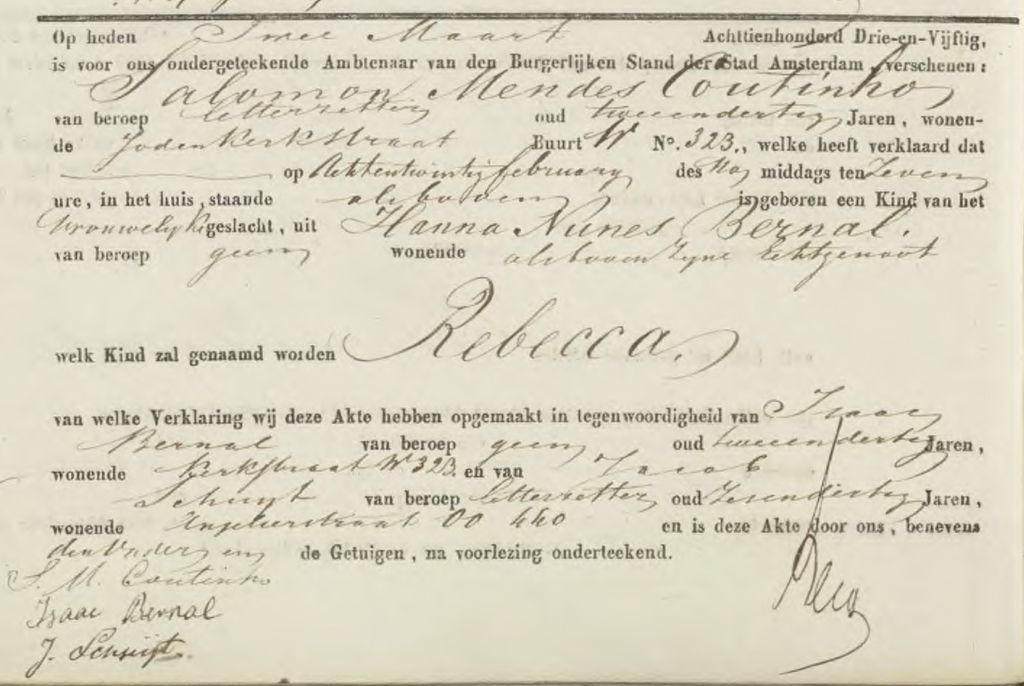 Op heden Twee Maart Achttienhonderd Drie-en-Vijftig,
is voor ons ondergeteekende Ambtenaar van den Burgerlijken Stand der Stad Amsterdam, verschenen:
Salomon Mendes Coutinho
van beroep letterzetter oud tweeendertig Jaren, wonen-
de Joden Kerkstraat Buurt W No. 323., welke heeft verklaard dat
op Achtentwintig february des Na middags ten Zeven
ure, in het huis, staande alsboven is geboren een Kind van het
Vrouwelijk geslacht, uit Hanna Nunes Bernal.
van beroep geen wonende alsboven zyne Echtgenoot
welk Kind zal genaamd worden Rebecca.
van welke Verklaring wij deze Akte hebben opgemaakt in tegenwoordigheid van Isaac
Bernal van beroep geen oud tweeendertig Jaren,
wonende Kerkstraat W 323. en van Jacob
Schuijt van beroep letterzetter oud Zesendertig Jaren,
wonende OO 440 en is deze Akte door ons, benevens
den Vader en de Getuigen, na voorlezing onderteekend.
S. M. Coutinho
Isaac Bernal
J. Schuijt.